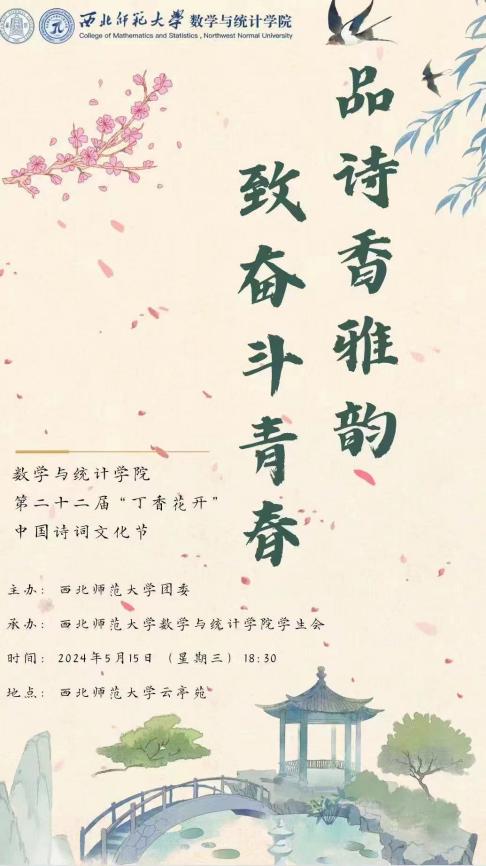 西北师范大学 数学与统计学院
College of Mathematics and Statistics , Northwest Normal University
品诗香雅韵
致奋斗青春
数学与统计学院
第二十二届“丁香花开”
中国诗词文化节
主办: 西北师范大学团委
承办: 西北师范大学数学与统计学院学生会
时间: 2024年5月15日 (星期三) 18:30
地点: 西北师范大学云亭苑